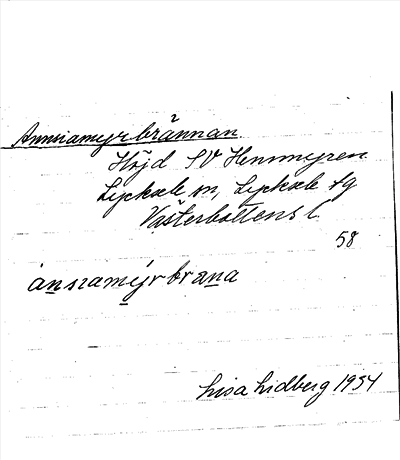 Annsiamyrbrännan
Höjd SV Hemmyren
Lycksele sn, Lycksele tg
Västerbottens l.
58
ánsɩamýrbrana
Lisa Lidberg 1954